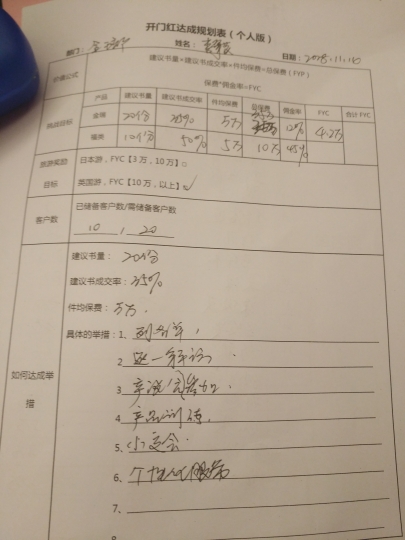 开门红达成规划表（个人版）
部门： 姓名： 日期：2018.11.10
价值公式 建议书量×建议书成交率×件均保费=总保费（FYP）
保费*佣金率=FYC
产品 建议书量 建议书成交率 件均保费 总保费 佣金率 FYC 合计 FYC
商品目标 金瑞 20份 35% 5万 35万 12% 4.2万
福类 10份 50% 5万 10万 45%
旅游奖励 日本游，FYC【3万，10万】□
目标 英国游，FYC【10万，以上】☑
客户数 已储备客户数/需储备客户数
10 / 20
建议书量： 20份
建议书成交率： 35%
件均保费： 5万
如何达成举措
具体的举措：1、列名单，
2 一 .
3
4 产品训练，
5、小交会
6、个性化服务
7、
8